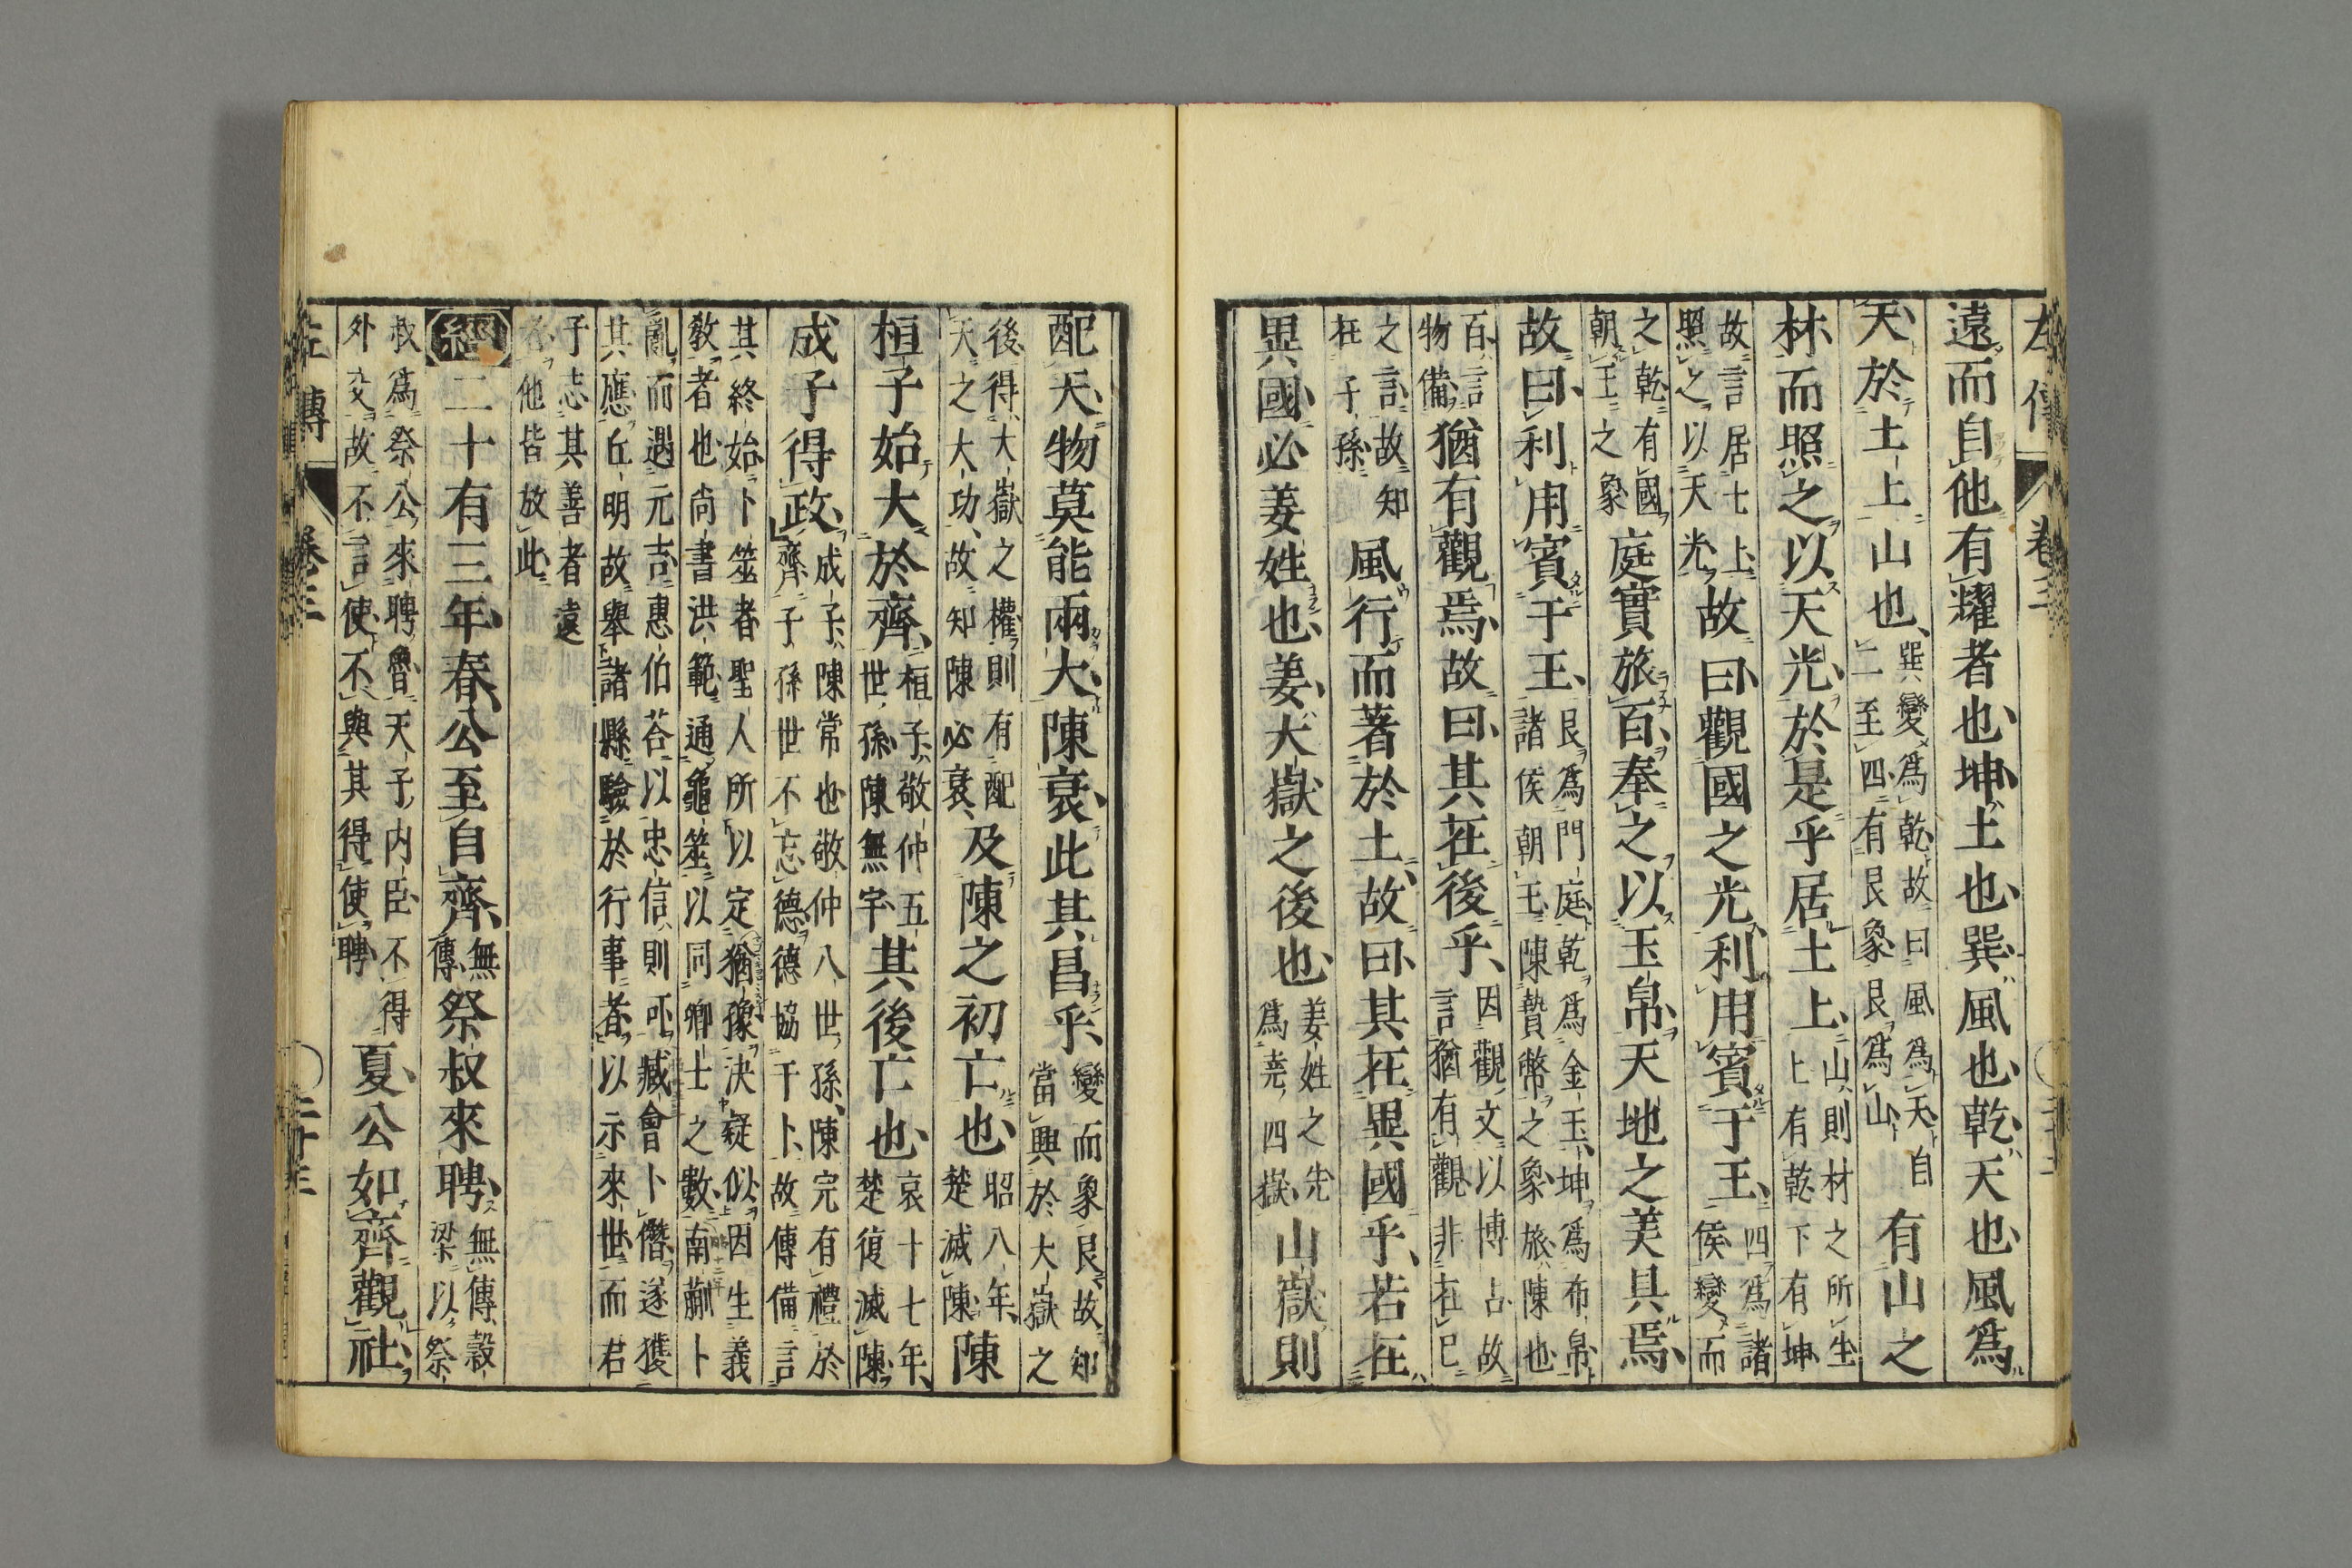 左傳 卷三
遠而自他有耀者也坤土也巽風也乾天也風爲
天於土上山也巽變爲乾故曰風爲天自二至四有艮象艮爲山有山之
材而照之以天光於是乎居土上山則材之所生上有乾下有坤
故言居土上照之以天光故曰觀國之光利用賓于王四爲諸侯變而
之乾有國朝王之象庭實旅百奉之以玉帛天地之美具焉
故曰利用賓于王艮爲門庭乾爲金玉坤爲布帛諸侯朝王陳贄幣之象旅陳也
百言物備猶有觀焉故曰其在後乎因觀文以博占故言猶有觀非在己
之言故知在子孫風行而著於土故曰其在異國乎若在
異國必姜姓也姜大嶽之後也姜姓之先爲堯四嶽山嶽則
配天物莫能兩大陳衰此其昌乎變而象艮故知當興於大嶽之
後得大嶽之權則有配天之大功故知陳必衰及陳之初亡也昭八年楚滅陳陳
桓子始大於齊桓子敬仲五世孫陳無宇其後亡也哀十七年楚復滅陳
成子得政成子陳常也敬仲八世孫陳完有禮於齊子孫世不忘德德協于卜故傳備言
其終始卜筮者聖人所以定猶豫決疑似因生義教者也尚書洪範通龜筮以同卿士之數南蒯卜
亂而遇元吉惠伯荅以忠信則可臧會卜僭遂獲其應丘明故舉諸縣驗於行事者以示來世而君
子志其善者遠者他皆放此
經二十有三年春公至自齊無傳祭叔來聘無傳穀梁以祭
叔爲祭公來聘魯天子内臣不得外交故不言使不與其得使聘夏公如齊觀社
左傳 卷三 二十三